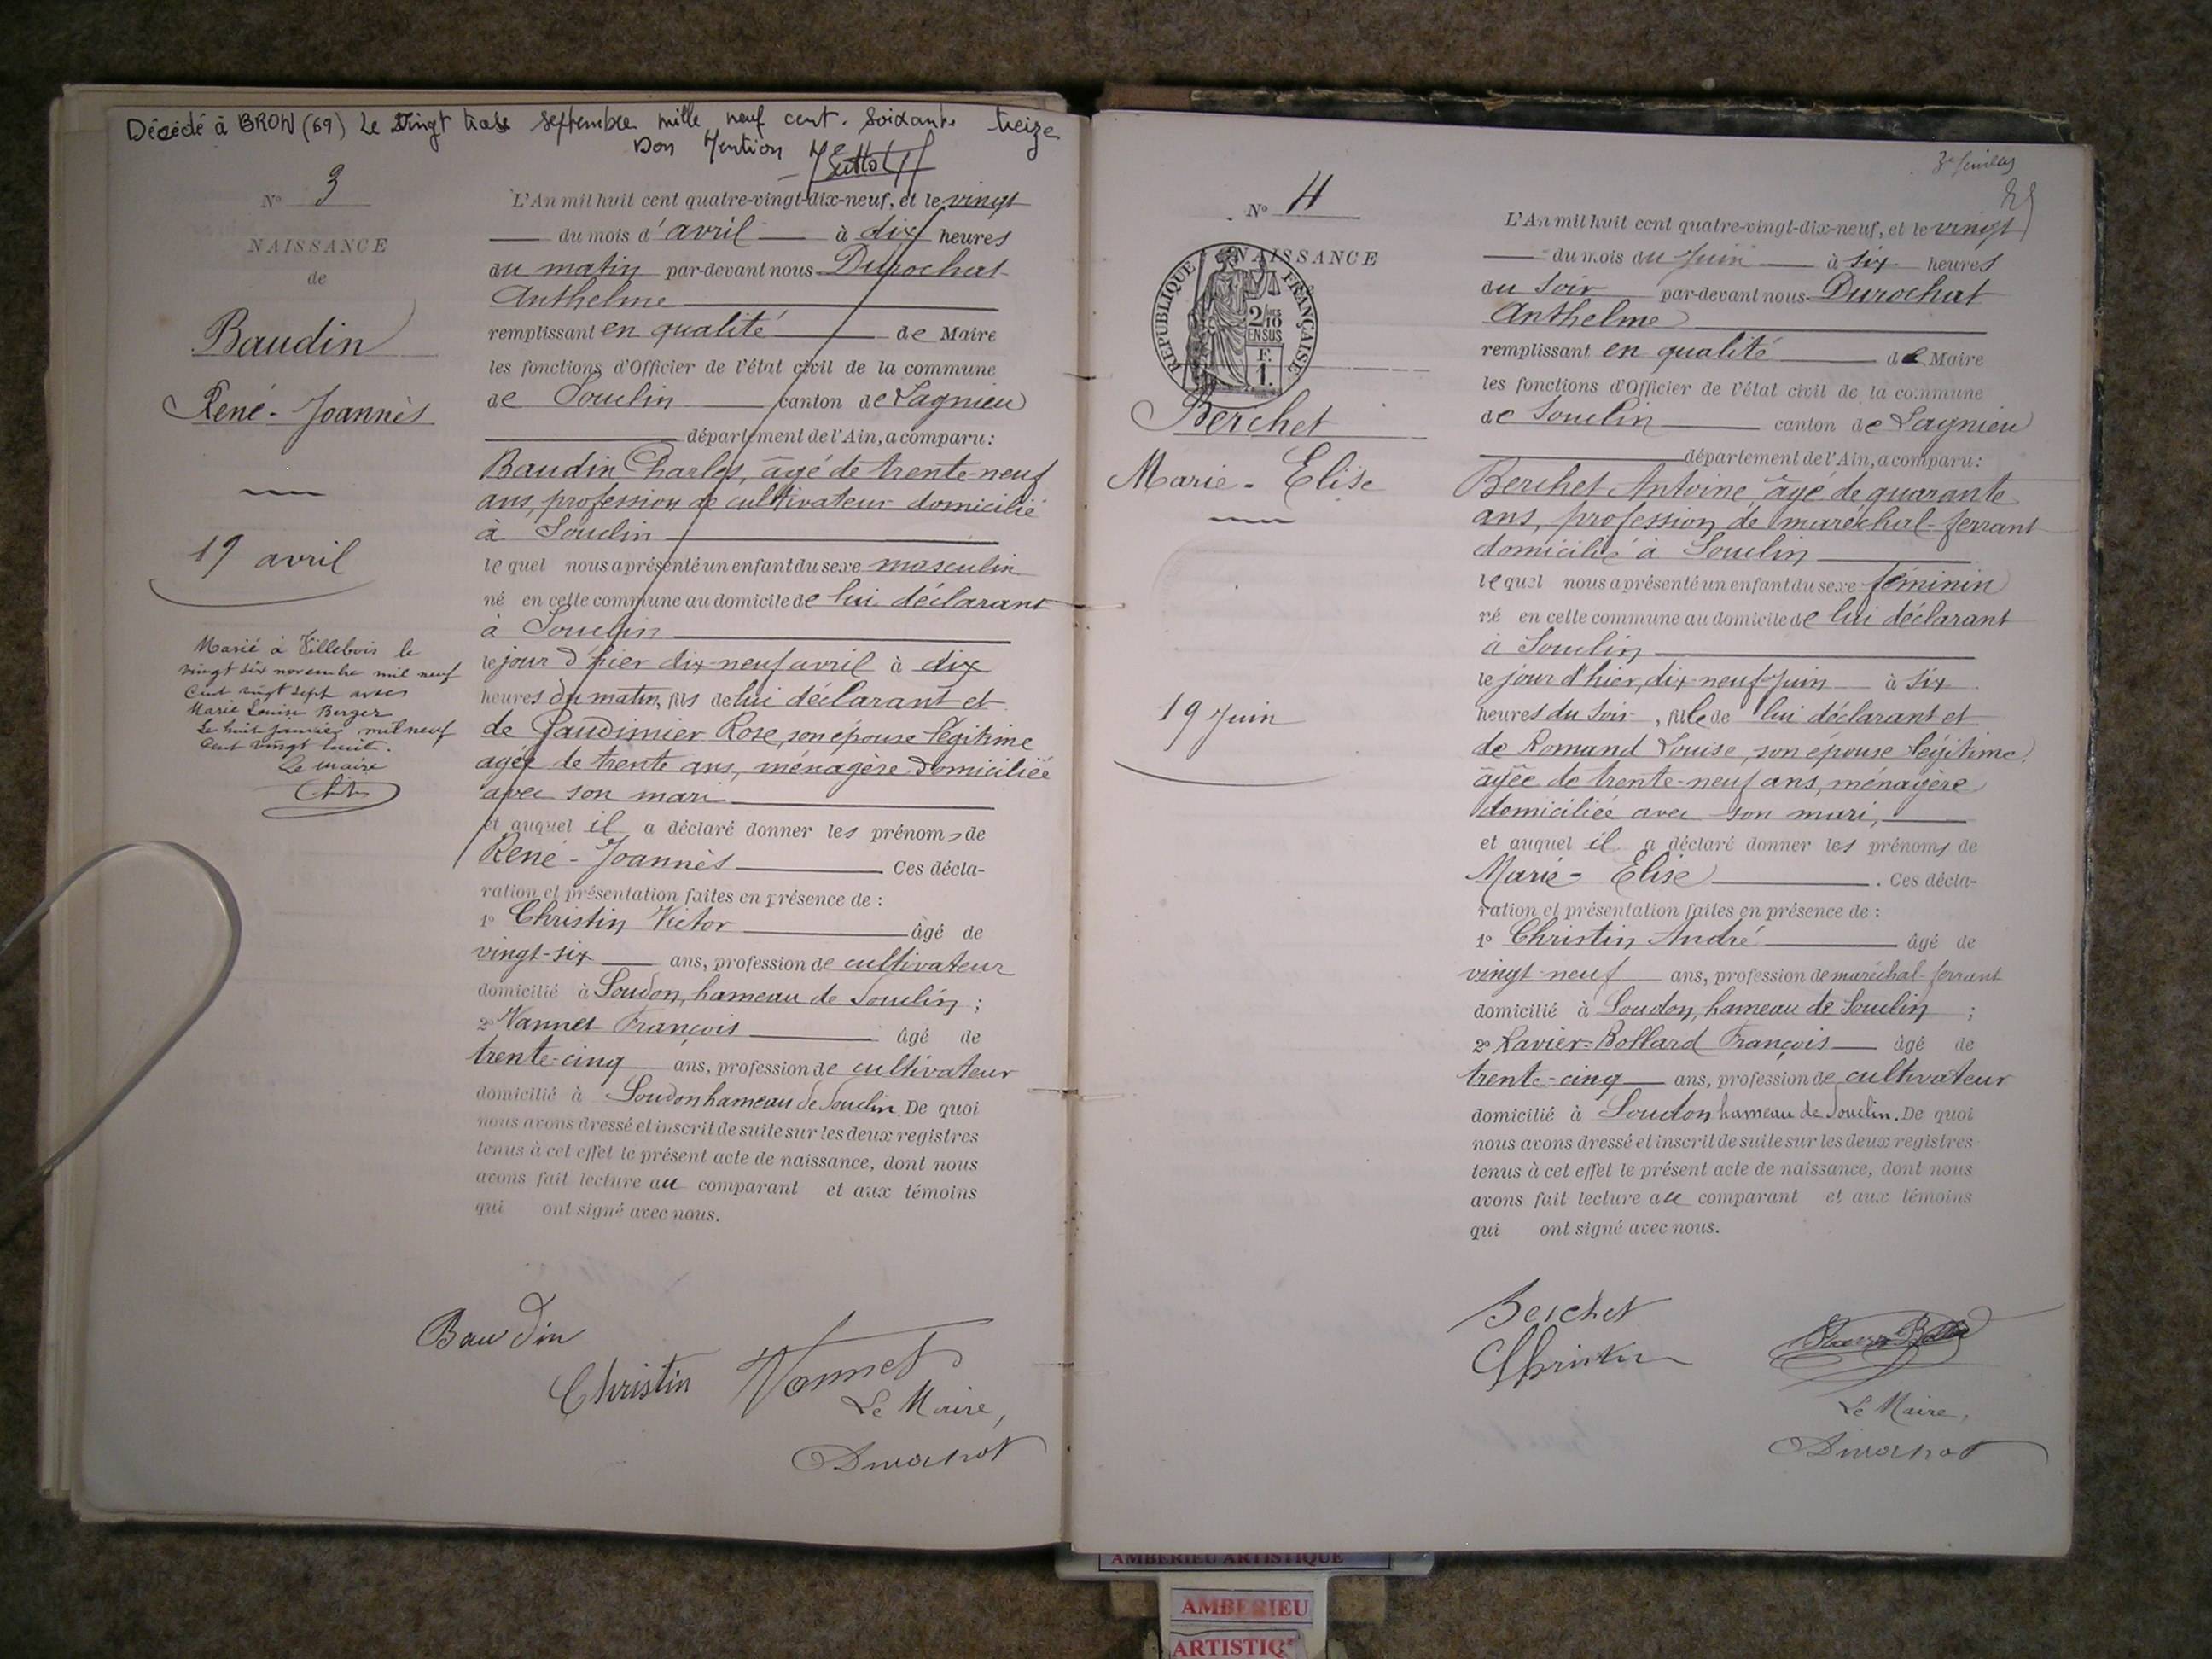 Décédé à BRON (69) Le Vingt trois septembre mille neuf cent. Soixante treize
Don Mention
N° 3
NAISSANCE
de
Baudin
René-Joannès
19 avril
Marié à Villebois le
vingt six novembre mil neuf
cent vingt sept avec
Marie Louise Berger
Le huit janvier mil neuf
cent vingt huit.
Le maire
L'An mil huit cent quatre-vingt-dix-neuf, et le vingt
du mois d'avril à dix heures
du matin par-devant nous Durochat
Anthelme
remplissant en qualité de Maire
les fonctions d'Officier de l'état civil de la commune
de Souclin canton de Lagnieu
département de l'Ain, a comparu:
Baudin Charles, âgé de trente-neuf
ans, profession de cultivateur domicilié
à Souclin
lequel nous a présenté un enfant du sexe masculin
né en cette commune au domicile de lui déclarant
à Souclin
le jour d'hier dix-neuf avril à dix
heures du matin, fils de lui déclarant et
de Gaudimier Rose, son épouse légitime
agée de trente ans, ménagère domiciliée
avec son mari
et auquel il a déclaré donner les prénoms de
René-Joannès Ces décla-
ration et présentation faites en présence de :
1° Christin Victor âgé de
vingt-six ans, profession de cultivateur
domicilié à Soudon, hameau de Souclin ;
2° Vannet François âgé de
trente-cinq ans, profession de cultivateur
domicilié à Soudon hameau de Souclin. De quoi
nous avons dressé et inscrit de suite sur les deux registres
tenus à cet effet le présent acte de naissance, dont nous
avons fait lecture au comparant et aux témoins
qui ont signé avec nous.
Baudin
Christin Vannet
Le Maire,
Durochat
3e feuillet
N° 4
NAISSANCE
REPUBLIQUE FRANÇAISE
2/10
EN SUS
F.
1.
Berchet
Marie-Elise
19 Juin
L'An mil huit cent quatre-vingt-dix-neuf, et le vingt
du mois du Juin à six heures
du soir par-devant nous Durochat
Anthelme
remplissant en qualité de Maire
les fonctions d'Officier de l'état civil de la commune
de Souclin canton de Lagnieu
département de l'Ain, a comparu:
Berchet Antoine âgé de quarante
ans, profession de maréchal-ferrant
domicilié à Souclin
lequel nous a présenté un enfant du sexe féminin
né en cette commune au domicile de lui déclarant
à Souclin
le jour d'hier, dix-neuf Juin à six
heures du soir, fille de lui déclarant et
de Romand Louise, son épouse légitime,
âgée de trente-neuf ans, ménagère
domiciliée avec son mari,
et auquel il a déclaré donner les prénoms de
Marie-Elise. Ces décla-
ration et présentation faites en présence de :
1° Christin André âgé de
vingt-neuf ans, profession de maréchal-ferrant
domicilié à Soudon, hameau de Souclin ;
2° Ravier=Bollard François âgé de
trente-cinq ans, profession de cultivateur
domicilié à Soudon hameau de Souclin. De quoi
nous avons dressé et inscrit de suite sur les deux registres
tenus à cet effet le présent acte de naissance, dont nous
avons fait lecture au comparant et aux témoins
qui ont signé avec nous.
Berchet
Christin
Le Maire,
Durochat
AMBERIEU ARTISTIQUE
AMBERIEU
ARTISTIQ